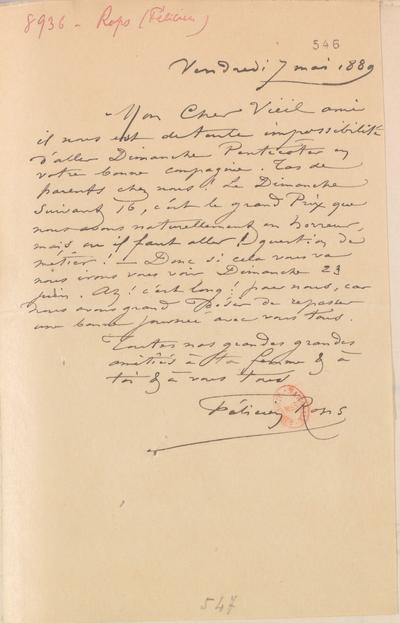 8936 - Rops (Félicien)
546
Vendredi 7 mai 1889
Mon Cher Vieil ami
il nous est de toute impossibilité
d'aller Dimanche Pentecôte en
votre bonne compagnie. Tas de
parents chez nous ! Le Dimanche
suivant 16, c'est le grand Prix que
nous avons naturellement en horreur,
mais, où il faut aller ! question de
métier ! — Donc si cela vous va
nous irons vous voir Dimanche 23
juin. Az ! c'est long ! pour nous, car
nous avons grand Désir de repasser
une bonne journée avec vous tous.
Toutes nos grandes grandes
amitiés à ta femme & à
toi & à vous tous
Félicien Rops
547